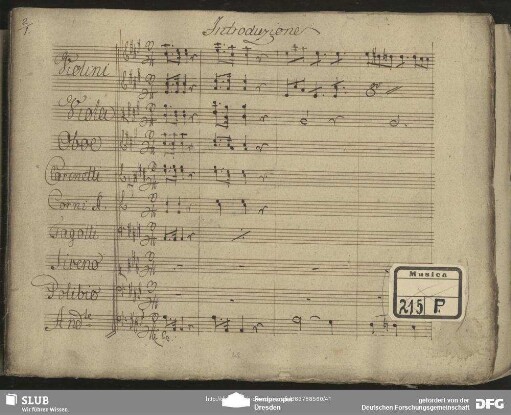 Introduzione
Violini
Viola
Oboe
Clarinetti
Corni
Fagotti
Fileno
Polibio
And.te
Musica
215 P.
SLUB
Wir führen Wissen.
Dresden
gefördert von der
Deutschen Forschungsgemeinschaft
DFG